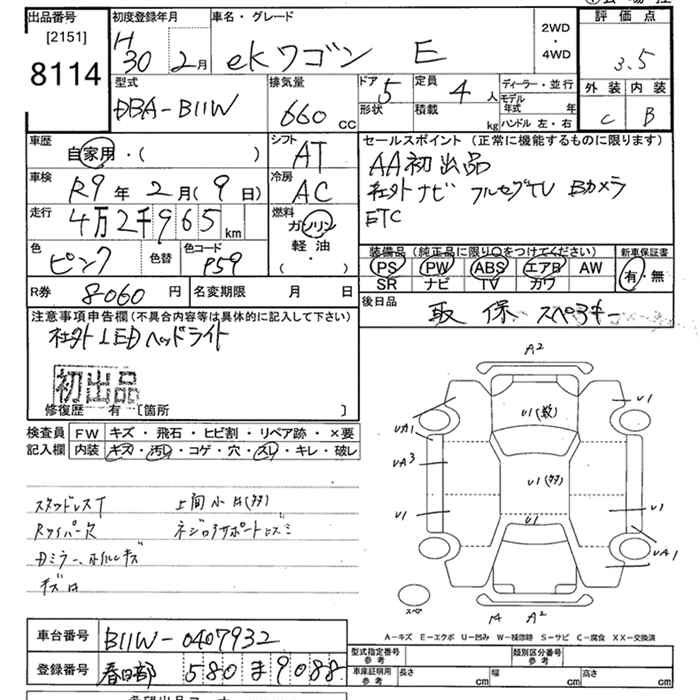 出品番号 初度登録年月 車名・グレード 評価点
[2151] H 30 2月 ekワゴン E 2WD・4WD 3.5
8114 型式 排気量 ドア 5 定員 4人 ディーラー・並行 外装 内装
DBA-B11W 660cc 形状 積載 kg モデル年式 年 C B
ハンドル 左・右
車歴 自家用・( ) シフト AT セールスポイント(正常に機能するものに限ります)
AA初出品
車検 R9年2月(9日) 冷房 AC 社外ナビ フルセグTV Bカメラ
走行 4万2千965km 燃料 ガソリン ETC
軽油
・( )
色 ピンク 色替 色コード P59 装備品(純正品に限り○をつけてください) 新車保証書
PS PW ABS エアB AW 有・無
SR ナビ TV カワ
R券 8060円 名変期限 月 日 後日品 取 保 スペアキー
注意事項申告欄(不具合内容等は具体的に記入して下さい)
社外LEDヘッドライト
初出品
修復歴 有 [箇所 ]
検査員 FW キズ・飛石・ヒビ割・リペア跡・×要
記入欄 内装 キズ・汚レ・コゲ・穴・スレ・キレ・破レ
スタッドレスT
Rワイパー欠
Dミラー、ホイルキズ
A2
U1
UA1
UA3
U1
U1
U1
U1
UA1
A2
スペア
A-キズ E-エクボ U-凹み W-補修跡 S-サビ C-腐食 XX-交換済
車台番号 B11W-0407932 型式指定番号 参考 類別区分番号 参考
登録番号 春日部 580 ま 9088 車庫証明用 参考 長さ cm 幅 cm 高さ cm